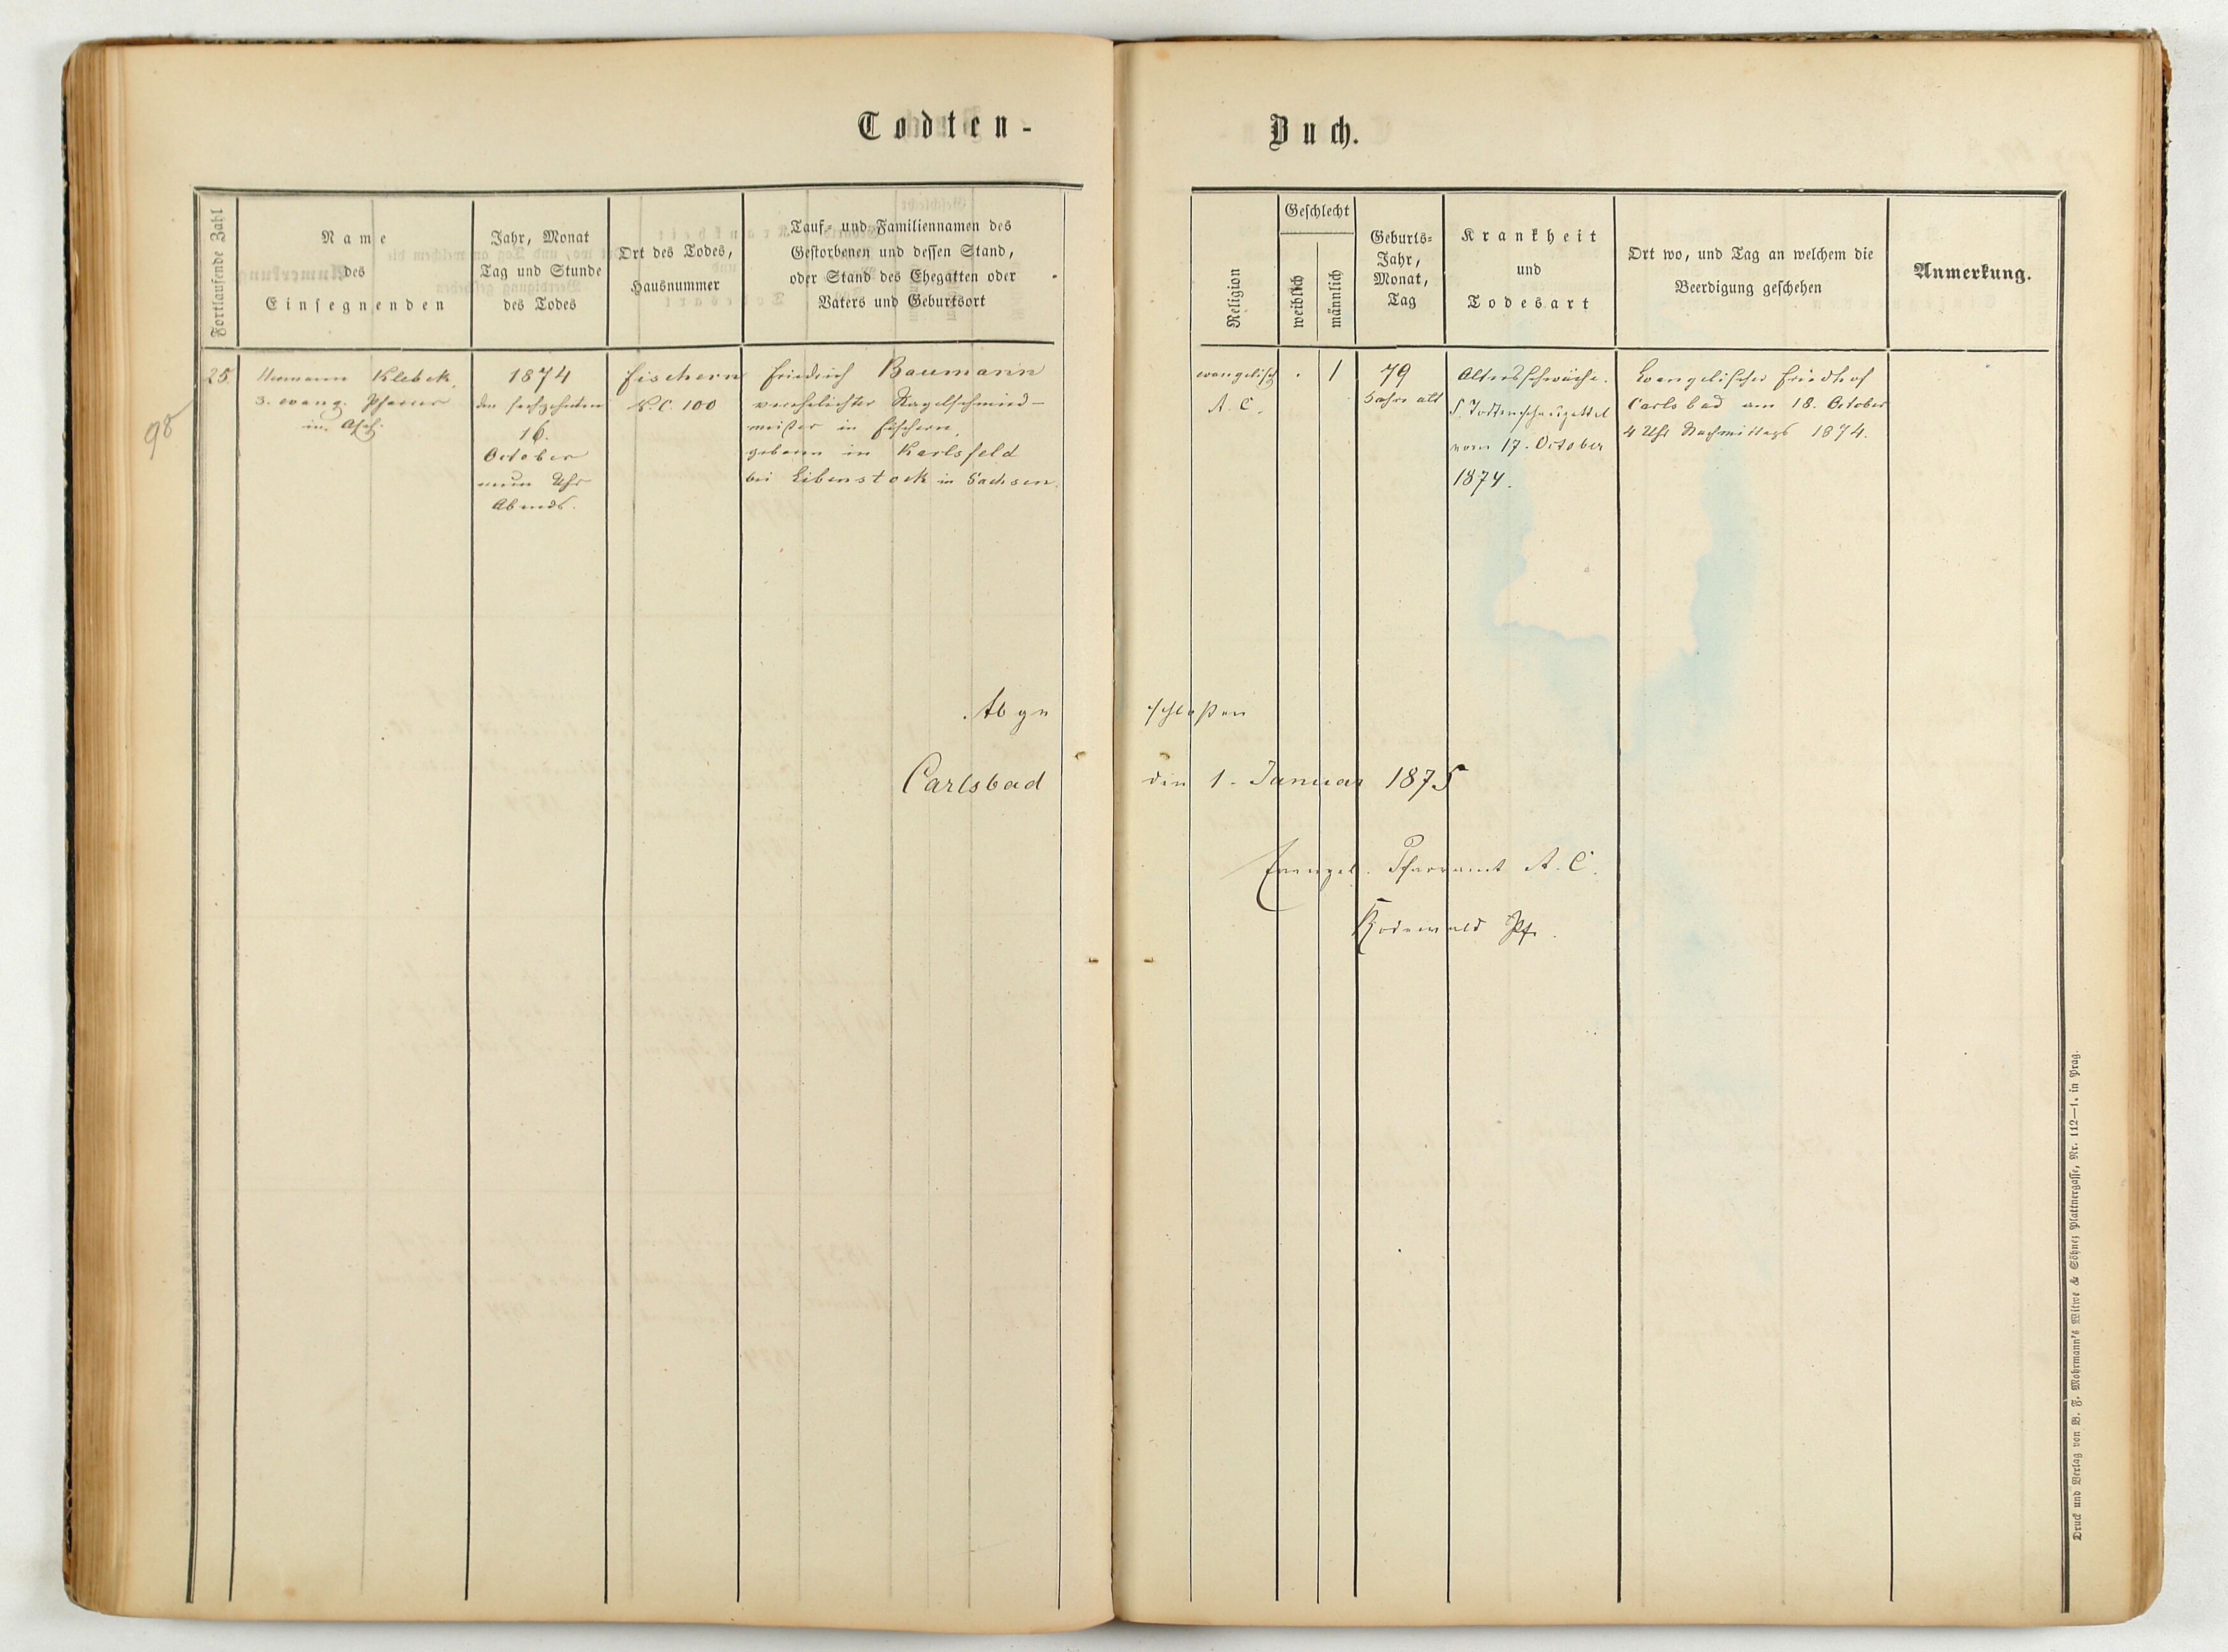 Todten-
Buch.
Fortlaufende Zahl
Name
des
Einsegnenden
Jahr, Monat
Tag und Stunde
des Todes
Ort des Todes,
Hausnummer
Tauf- und Familiennamen des
Gestorbenen und dessen Stand,
oder Stand des Ehegatten oder
Vaters und Geburtsort
Religion
Geschlecht
weiblich
männlich
Geburts-
Jahr,
Monat,
Tag
Krankheit
und
Todesart
Ort wo, und Tag an welchem die
Beerdigung geschehen
Anmerkung.
98
25.
Hermann Klebek,
3. evang. Pfarrer
in Asch.
1874
den sechzehnten
16.
October
neun Uhr
Abends.
Fischern
N.C. 100
Friedrich Baumann
verehelichter Nagelschmied-
meister in Fischern,
geboren in Karlsfeld
bei Eibenstock in Sachsen.
evangelisch
A. C.
1
79
Jahre alt
Altersschwäche.
s. Todtenschauzettel
vom 17. October
1874.
Evangelischer Friedhof
Carlsbad am 18. October
4 Uhr Nachmittags 1874.
Abge schloßen
Carlsbad den 1. Januar 1875
Evangel. Pfarramt A. C.
Rodewald Pf.
Druck und Verlag von B. F. Mohrmann's Witwe & Söhne; Plattnergasse, Nr. 112—1. in Prag.